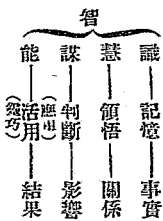 智
識—記憶—事實
慧—領悟—關係
謀—判斷—影響
(應用)
能—活用—結果
(靈巧)